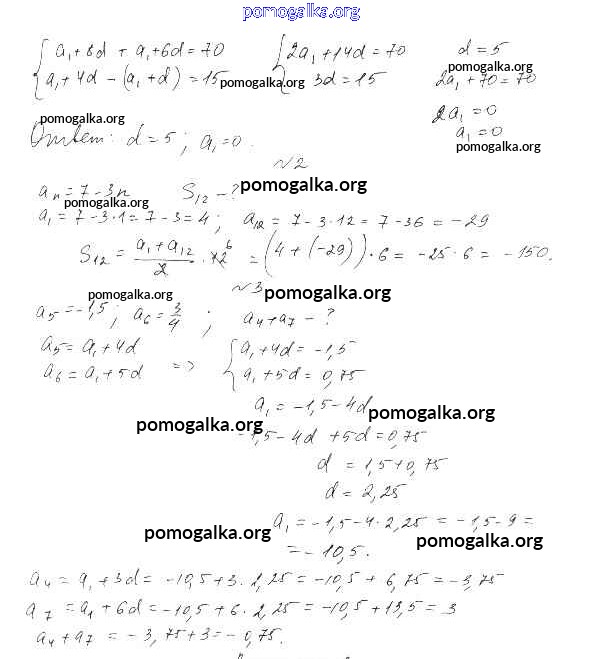 pomogalka.org
{ a₁+8d + a₁+6d = 70 { 2a₁+14d = 70 d = 5
a₁+4d - (a₁+d) = 15 pomogalka.org 3d = 15 pomogalka.org 2a₁+70 = 70
2a₁ = 0
pomogalka.org a₁ = 0
Ответ: d = 5; a₁ = 0. pomogalka.org
№2
aₙ = 7 - 3n S₁₂ - ? pomogalka.org
pomogalka.org
a₁ = 7 - 3·1 = 7 - 3 = 4; a₁₂ = 7 - 3·12 = 7 - 36 = -29
S₁₂ = (a₁ + a₁₂)/2 · 12 6 = (4 + (-29))·6 = -25·6 = -150.
№3
pomogalka.org pomogalka.org
a₅ = -1,5; a₆ = 3/4; a₄+a₇ - ?
a₅ = a₁ + 4d => { a₁+4d = -1,5
a₆ = a₁ + 5d a₁+5d = 0,75
a₁ = -1,5 - 4d pomogalka.org
pomogalka.org -1,5 - 4d + 5d = 0,75
d = 1,5+0,75
d = 2,25
a₁ = -1,5 - 4·2,25 = -1,5 - 9 =
pomogalka.org pomogalka.org
= -10,5.
a₄ = a₁ + 3d = -10,5 + 3·2,25 = -10,5 + 6,75 = -3,75
a₇ = a₁ + 6d = -10,5 + 6·2,25 = -10,5 + 13,5 = 3
a₄ + a₇ = -3,75 + 3 = -0,75.